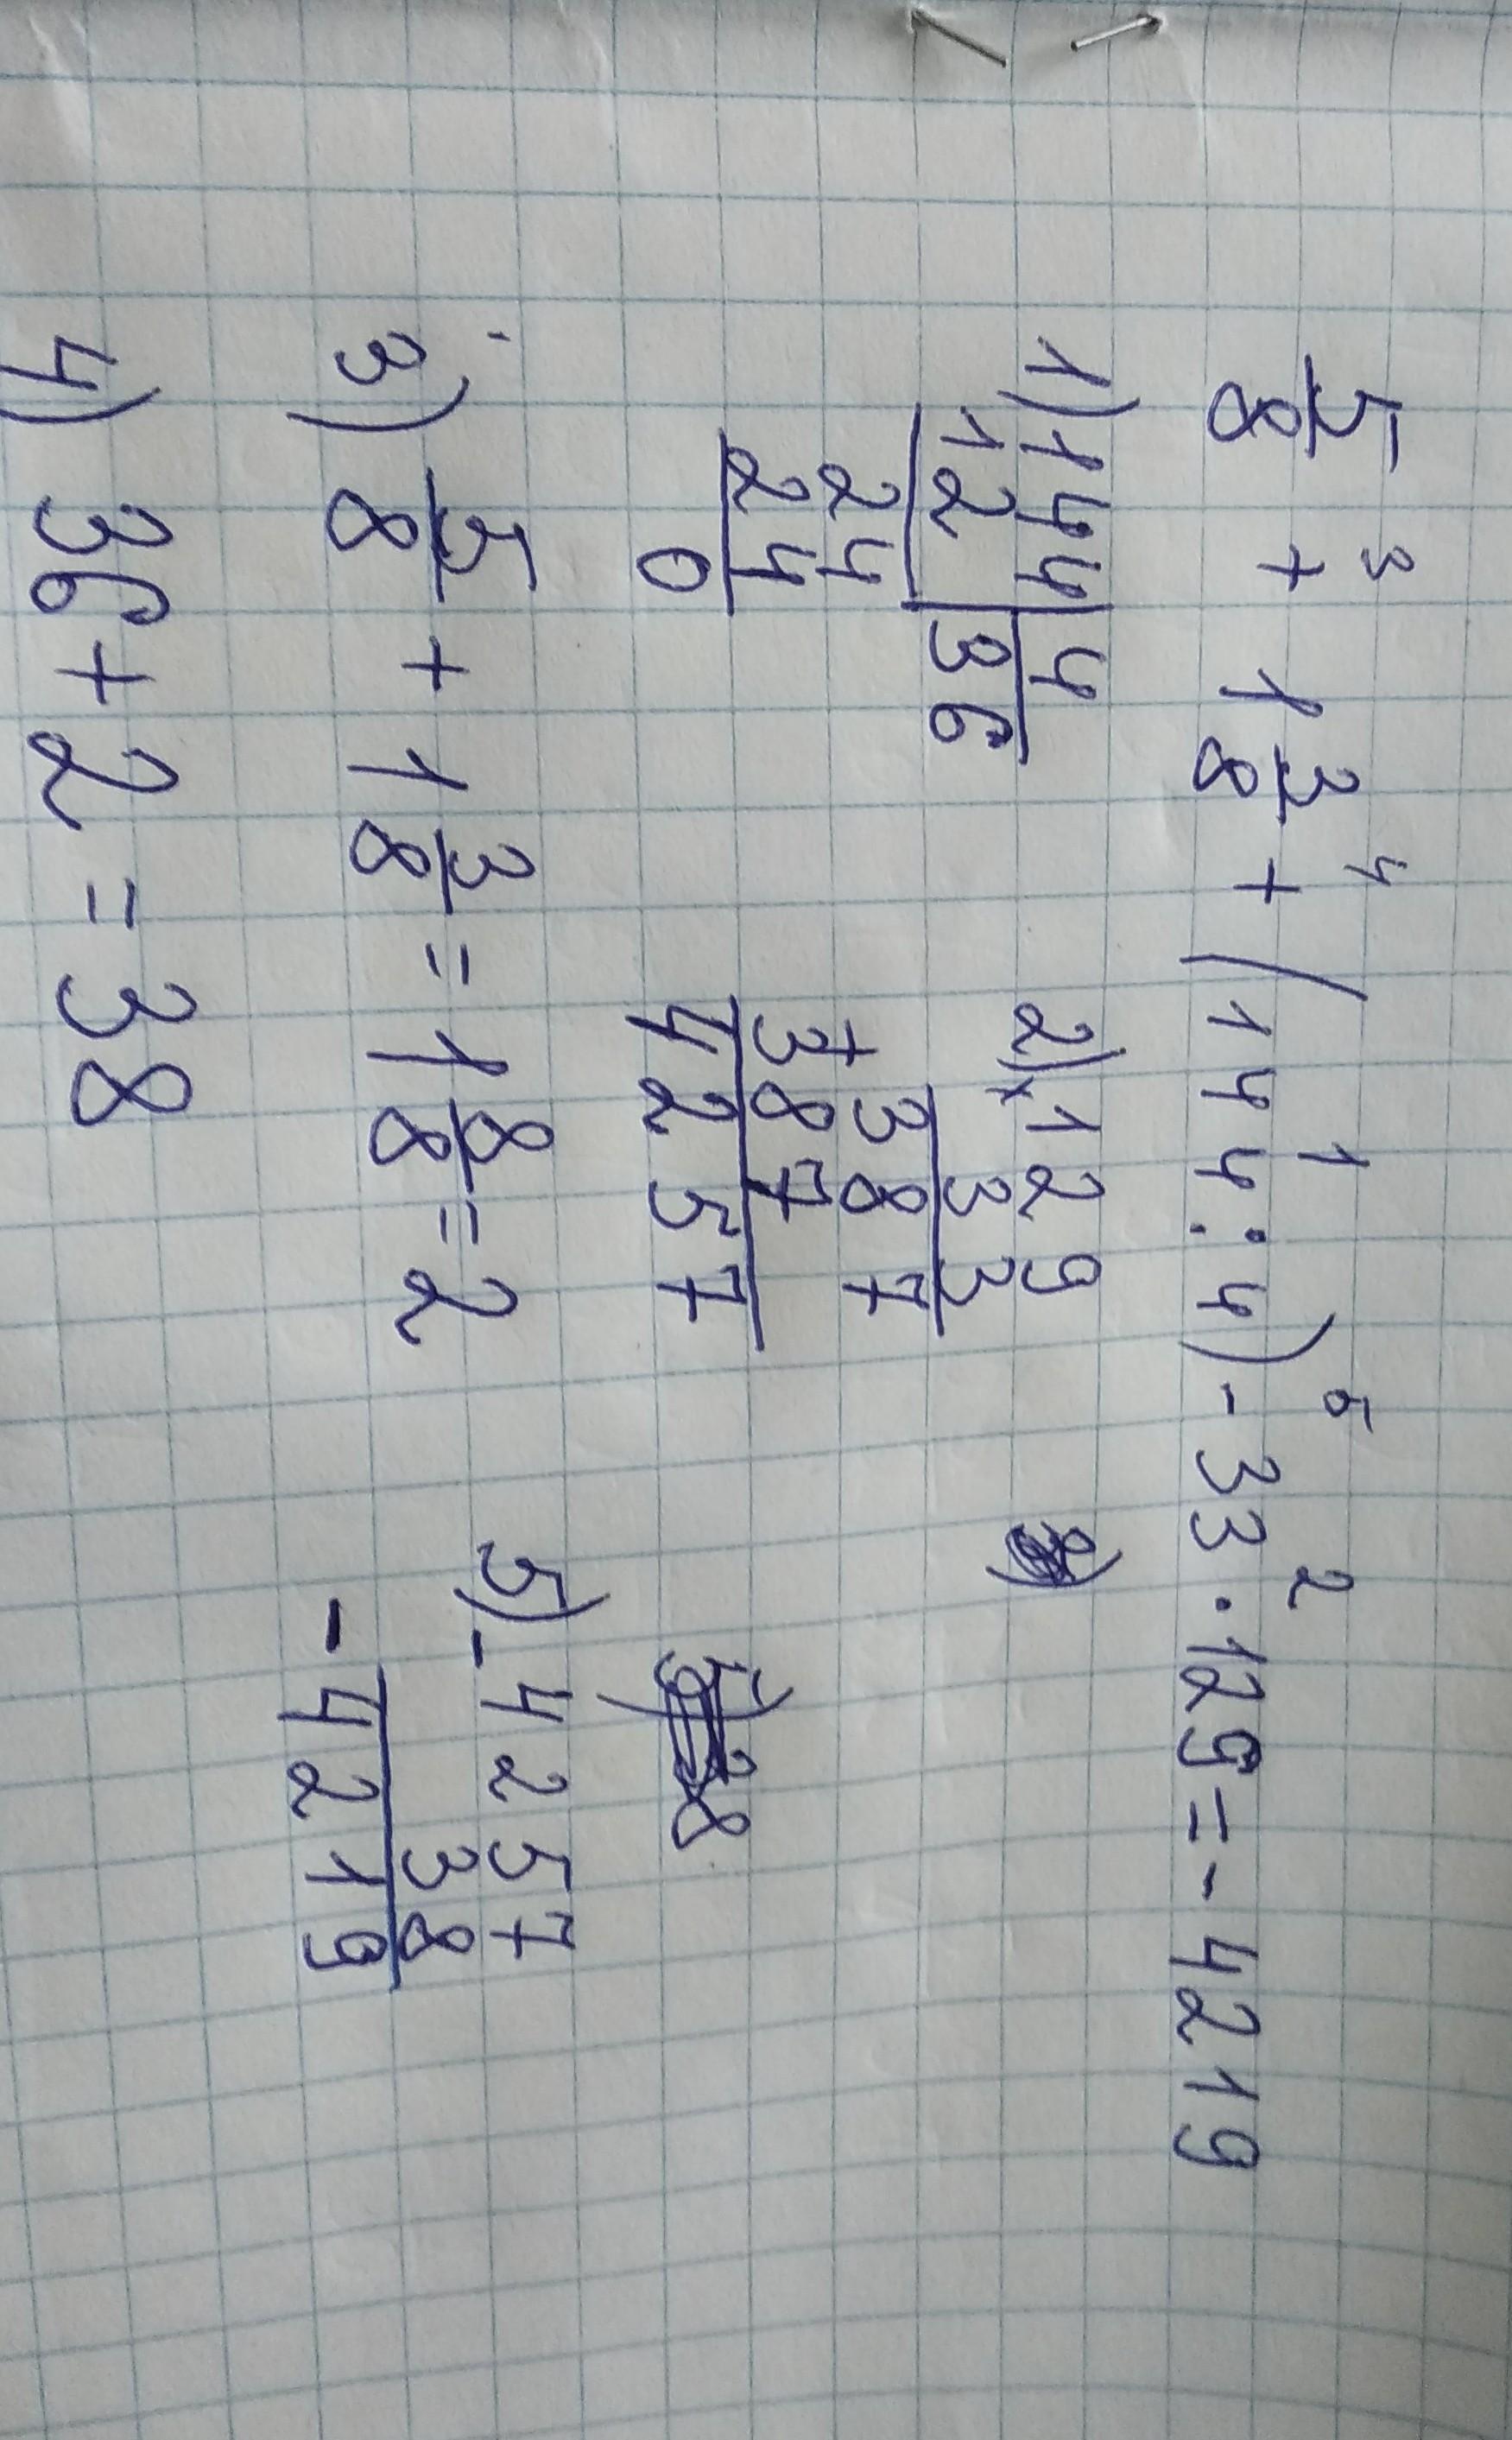 3 4 1 5 2
5/8 + 1 3/8 + (144:4) - 33·129=-4219
1) 144 | 4
12 | 36
24
24
0
2) × 129
33
387
+ 387
4257
3) 5/8 + 1 3/8 = 1 8/8 = 2
4) 36+2=38
5) - 4257
38
- 4219